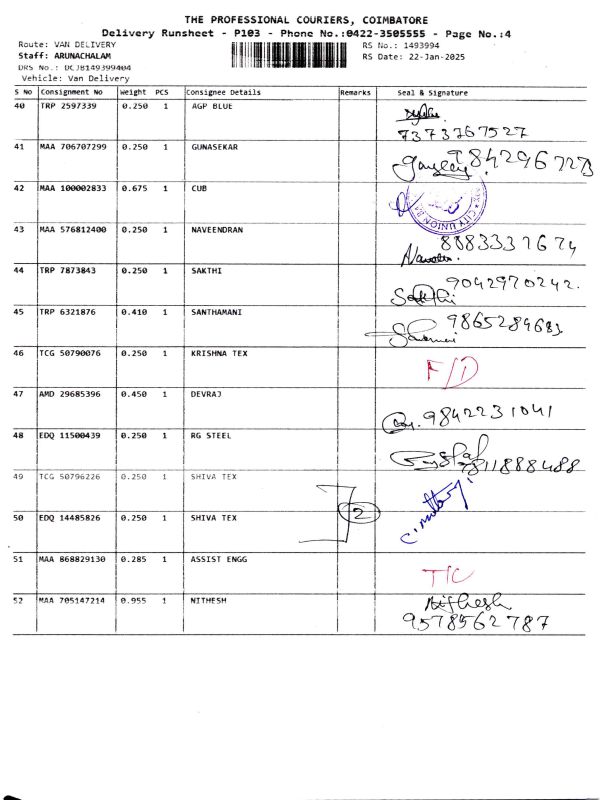 THE PROFESSIONAL COURIERS, COIMBATORE
Delivery Runsheet - P103 - Phone No.:0422-3505555 - Page No.:4
Route: VAN DELIVERY
RS No.: 1493994
Staff: ARUNACHALAM
RS Date: 22-Jan-2025
DRS No.: DCJB149399404
Vehicle: Van Delivery
S No Consignment No Weight PCS Consignee Details Remarks Seal & Signature
40 TRP 2597339 0.250 1 AGP BLUE
7373767527
41 MAA 706707299 0.250 1 GUNASEKAR
42 MAA 100002833 0.675 1 CUB
CITY UNION
43 MAA 576812400 0.250 1 NAVEENDRAN
8883331674
44 TRP 7873843 0.250 1 SAKTHI
9042970242.
Sakthi
45 TRP 6321876 0.410 1 SANTHAMANI
9865284683
46 TCG 50790076 0.250 1 KRISHNA TEX
F/D
47 AMD 29685396 0.450 1 DEVRAJ
9842231041
48 EDQ 11500439 0.250 1 RG STEEL
49 TCG 50796226 0.250 1 SHIVA TEX
2
50 EDQ 14485826 0.250 1 SHIVA TEX
51 MAA 868829130 0.285 1 ASSIST ENGG
T/C
52 MAA 705147214 0.955 1 NITHESH
Nithesh
9578562787